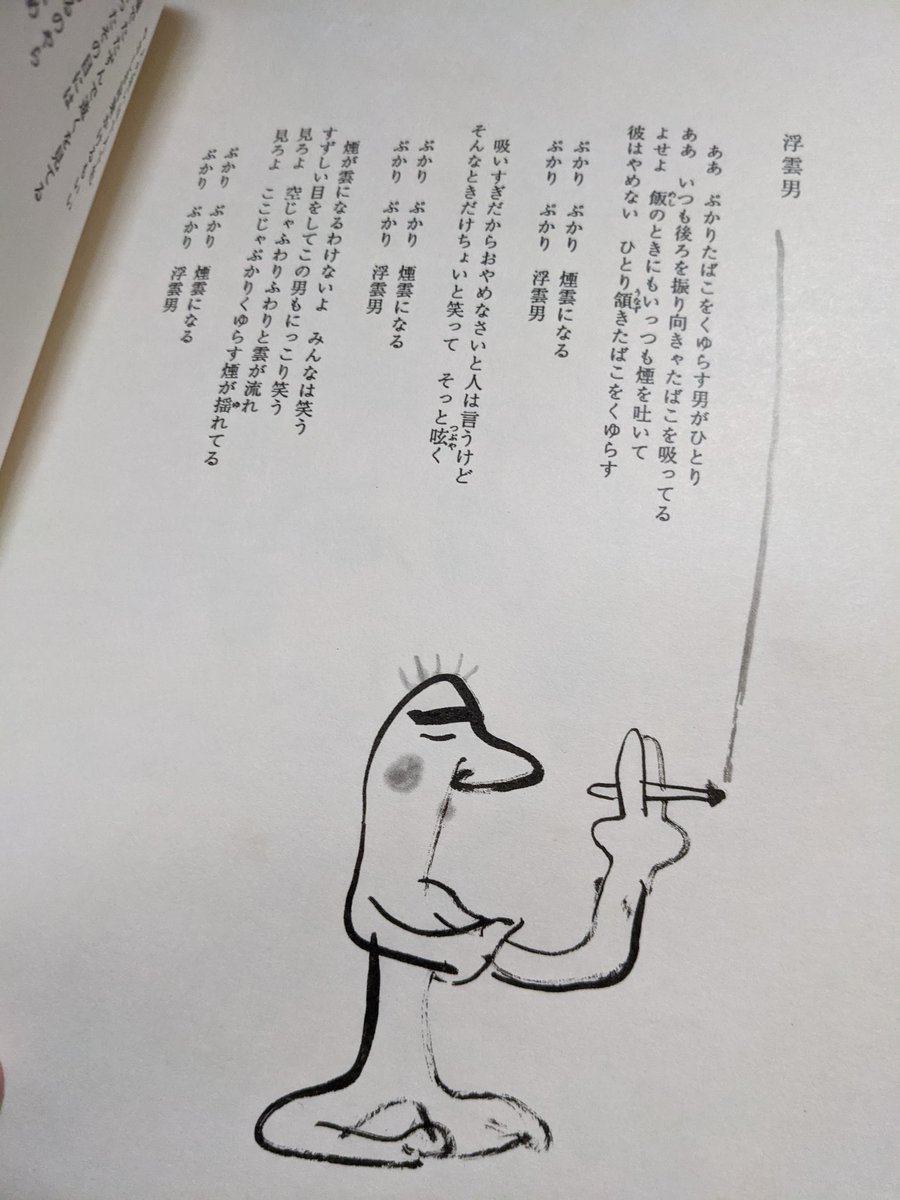 浮雲男
ああ　ぷかりたばこをくゆらす男がひとり
ああ　いつも後ろを振り向きゃたばこを吸ってる
よせよ　飯のときにもいっつも煙を吐いて
彼はやめない　ひとり頷きたばこをくゆらす
ぷかり　ぷかり　煙雲になる
ぷかり　ぷかり　浮雲男
吸いすぎだからおやめなさいと人は言うけど
そんなときだけちょいと笑って　そっと呟く
ぷかり　ぷかり　煙雲になる
ぷかり　ぷかり　浮雲男
煙が雲になるわけないよ　みんなは笑う
すずしい目をしてこの男もにっこり笑う
見ろよ　空じゃふわりふわりと雲が流れ
見ろよ　ここじゃぷかりくゆらす煙が揺れてる
ぷかり　ぷかり　煙雲になる
ぷかり　ぷかり　浮雲男